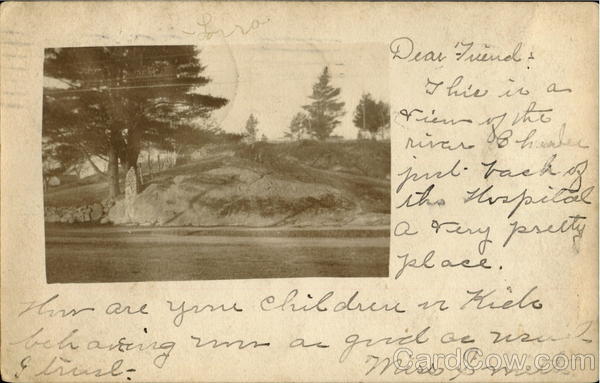 Dear Friend:
This is a
view of the
river Charles
just back of
the Hospital
a very pretty
place.
How are your children or Kids
behaving now as good as usual
I trust.
Miss
CardCow.com